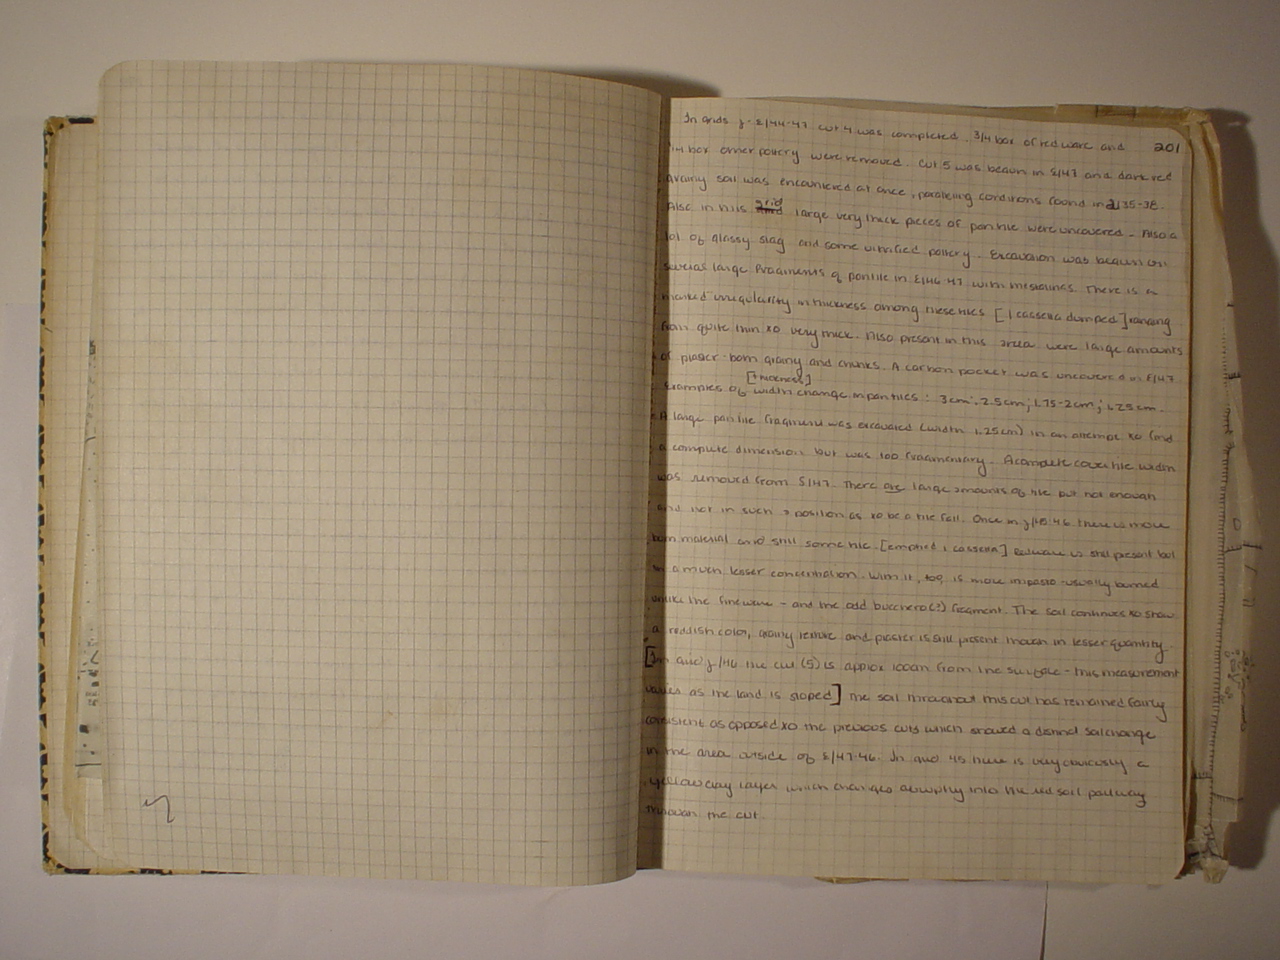 201
In grids J-E/44-47 cut 4 was completed. 3/4 box of redware and
1/4 box other pottery were removed. Cut 5 was begun in E/47 and dark red
grainy soil was encountered at once, paralleling conditions found in 2/35-38.
Also in this grid large very thick pieces of pantile were uncovered - Also a
lot of glassy slag and some vitrified pottery. Excavation was begun on
several large fragments of pantile in E/46-47 with mestolinos. There is a
marked irregularity in thickness among these tiles [1 cassetta dumped] ranging
from quite thin to very thick. Also present in this area were large amounts
of plaster - both grainy and chunks. A carbon pocket was uncovered in E/47
[thickness]
Examples of width change in pantiles: 3cm; 2.5cm; 1.75-2cm; 1.25cm.
A large pantile fragment was excavated (width 1.25cm) in an attempt to find
a complete dimension but was too fragmentary. A complete cover tile width
was removed from E/47. There are large amounts of tile but not enough
and not in such a position as to be a tile fall. Once in J/45-46 there is more
burn material and still some tile. [emptied 1 cassetta] Redware is still present but
in a much lesser concentration. With it, too, is more impasto - usually burned
unlike the fineware - and the odd bucchero(?) fragment. The soil continues to show
a reddish color, grainy texture and plaster is still present though in lesser quantity.
[In grid J/46 the cut (5) is approx 100cm from the surface - this measurement
varies as the land is sloped] The soil throughout this cut has remained fairly
consistent as opposed to the previous cuts which showed a distinct soil change
in the area outside of E/47-46. In grid 45 there is very obviously a
yellow clay layer which changes abruptly into the red soil partway
through the cut.